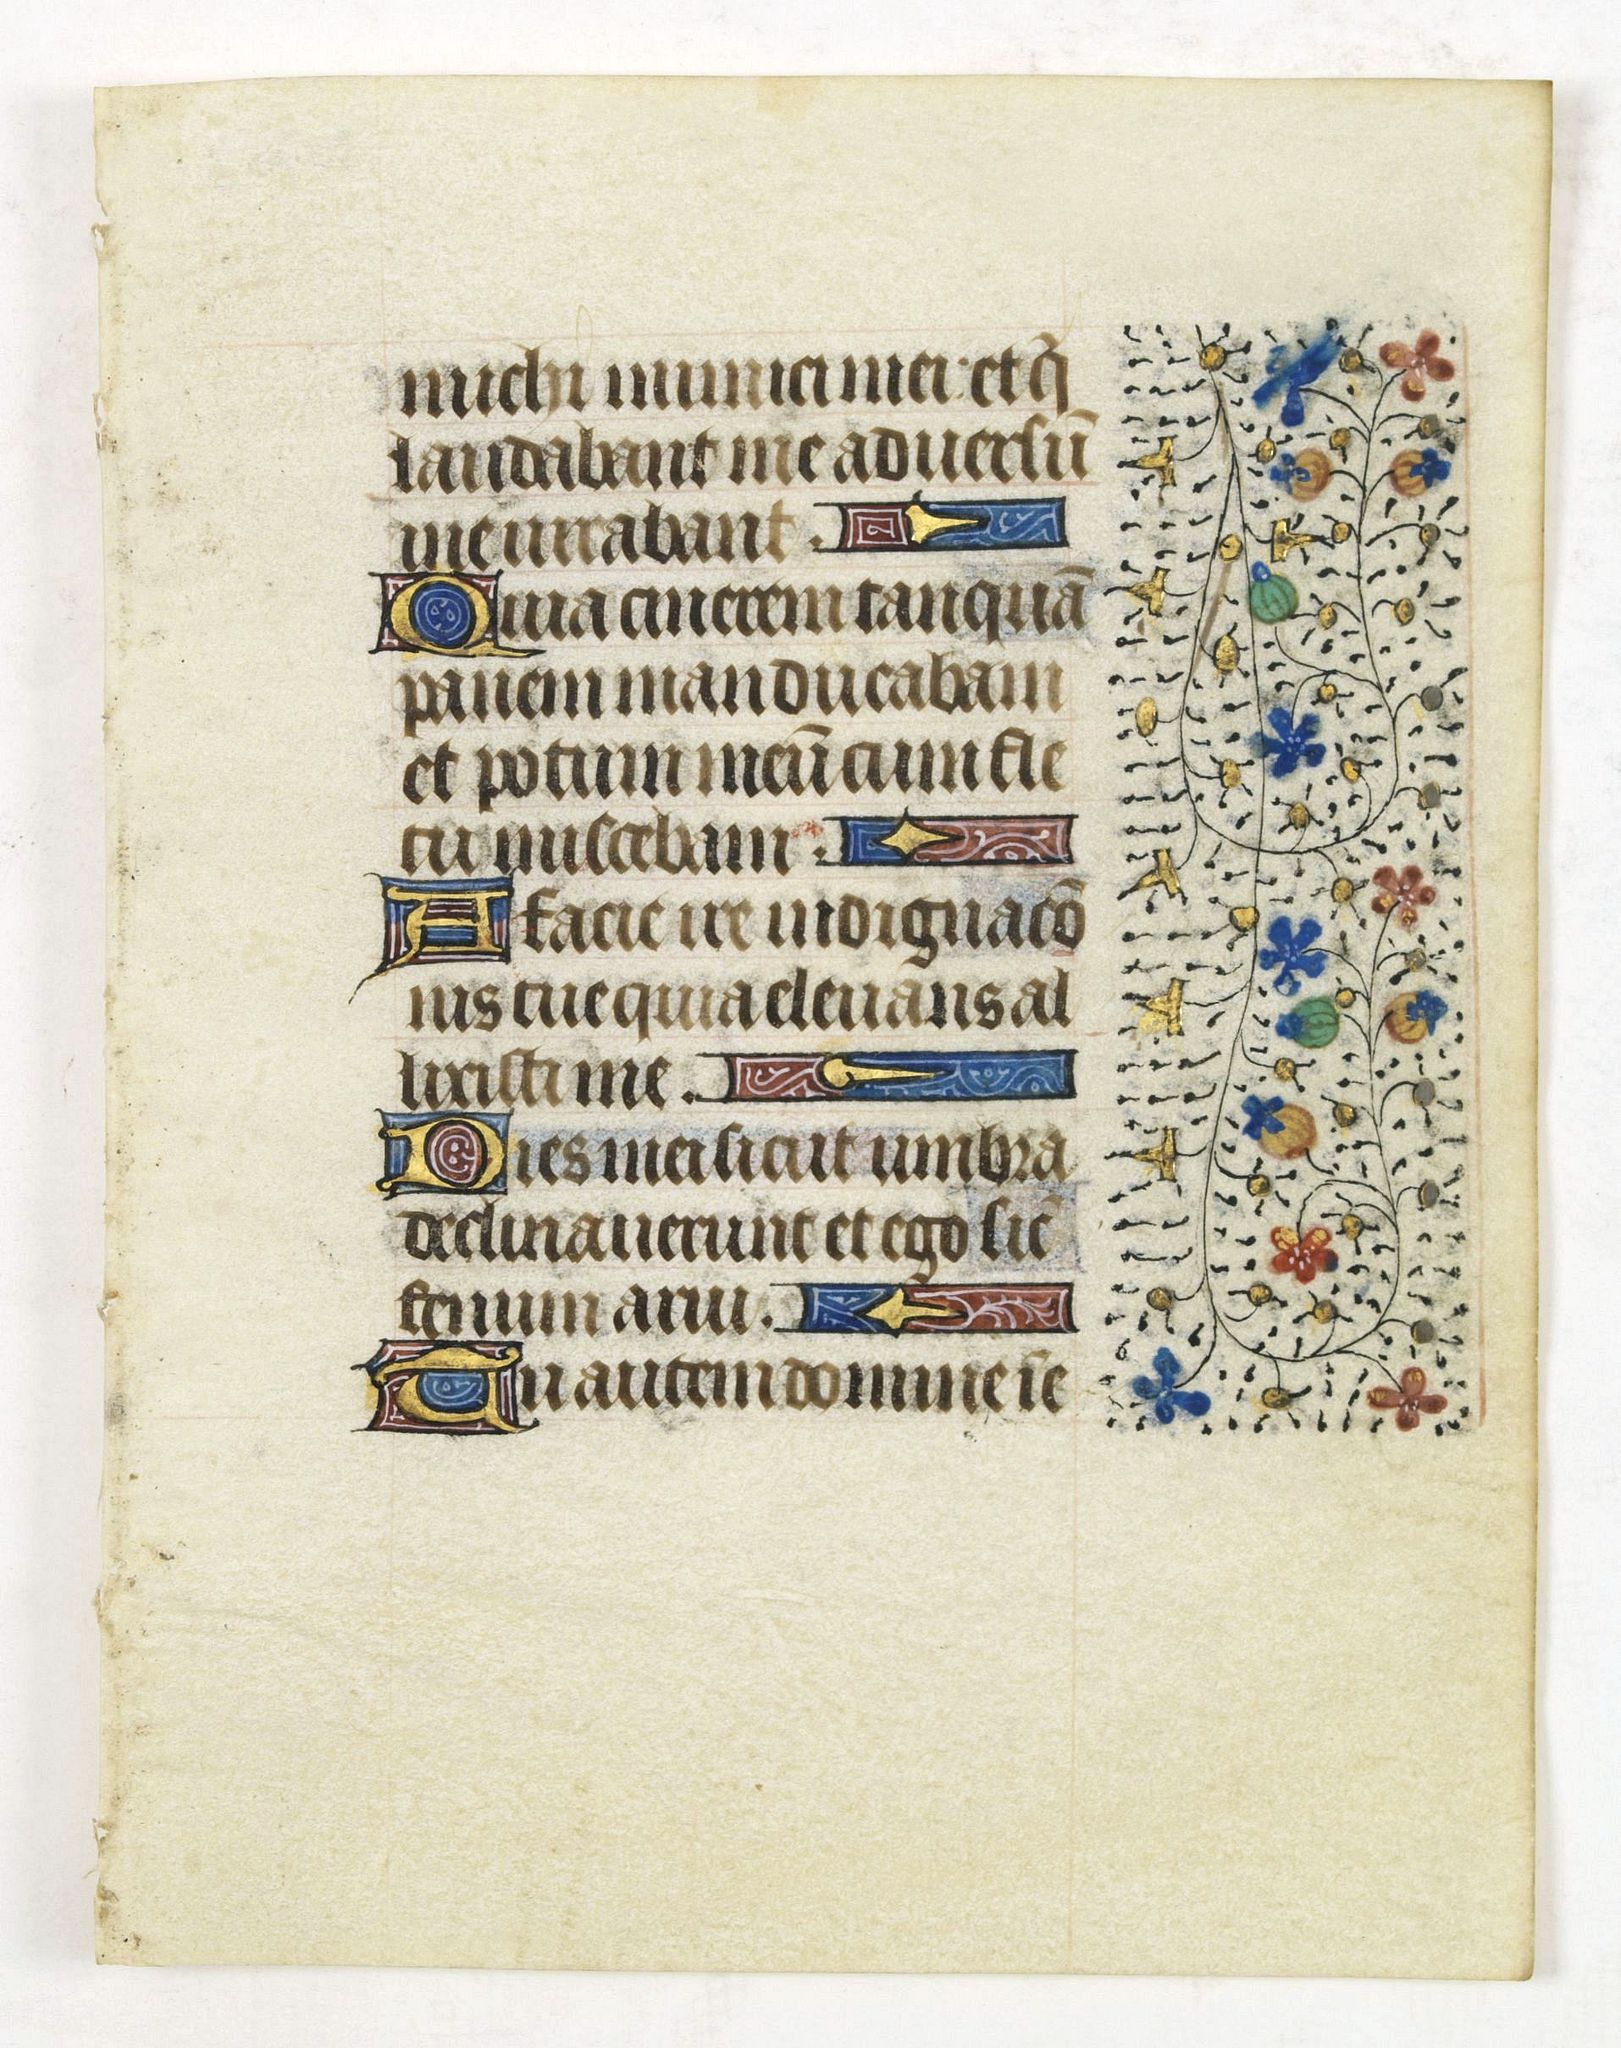 michi inimici mei: et q̄
laudabant me adversū
me iurabant.
Quia cinerem tanquā
panem manducabam
et potum meū cum fle
tu miscebam.
A facie ire indignacō
nis tue quia elevans al
lixisti me.
Dies mei sicut umbra
declinauerunt et ego sic̄
fenum arui.
Tu autem domine ie